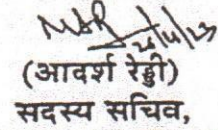 (आदर्श रेड्डी)
सदस्य सचिव,